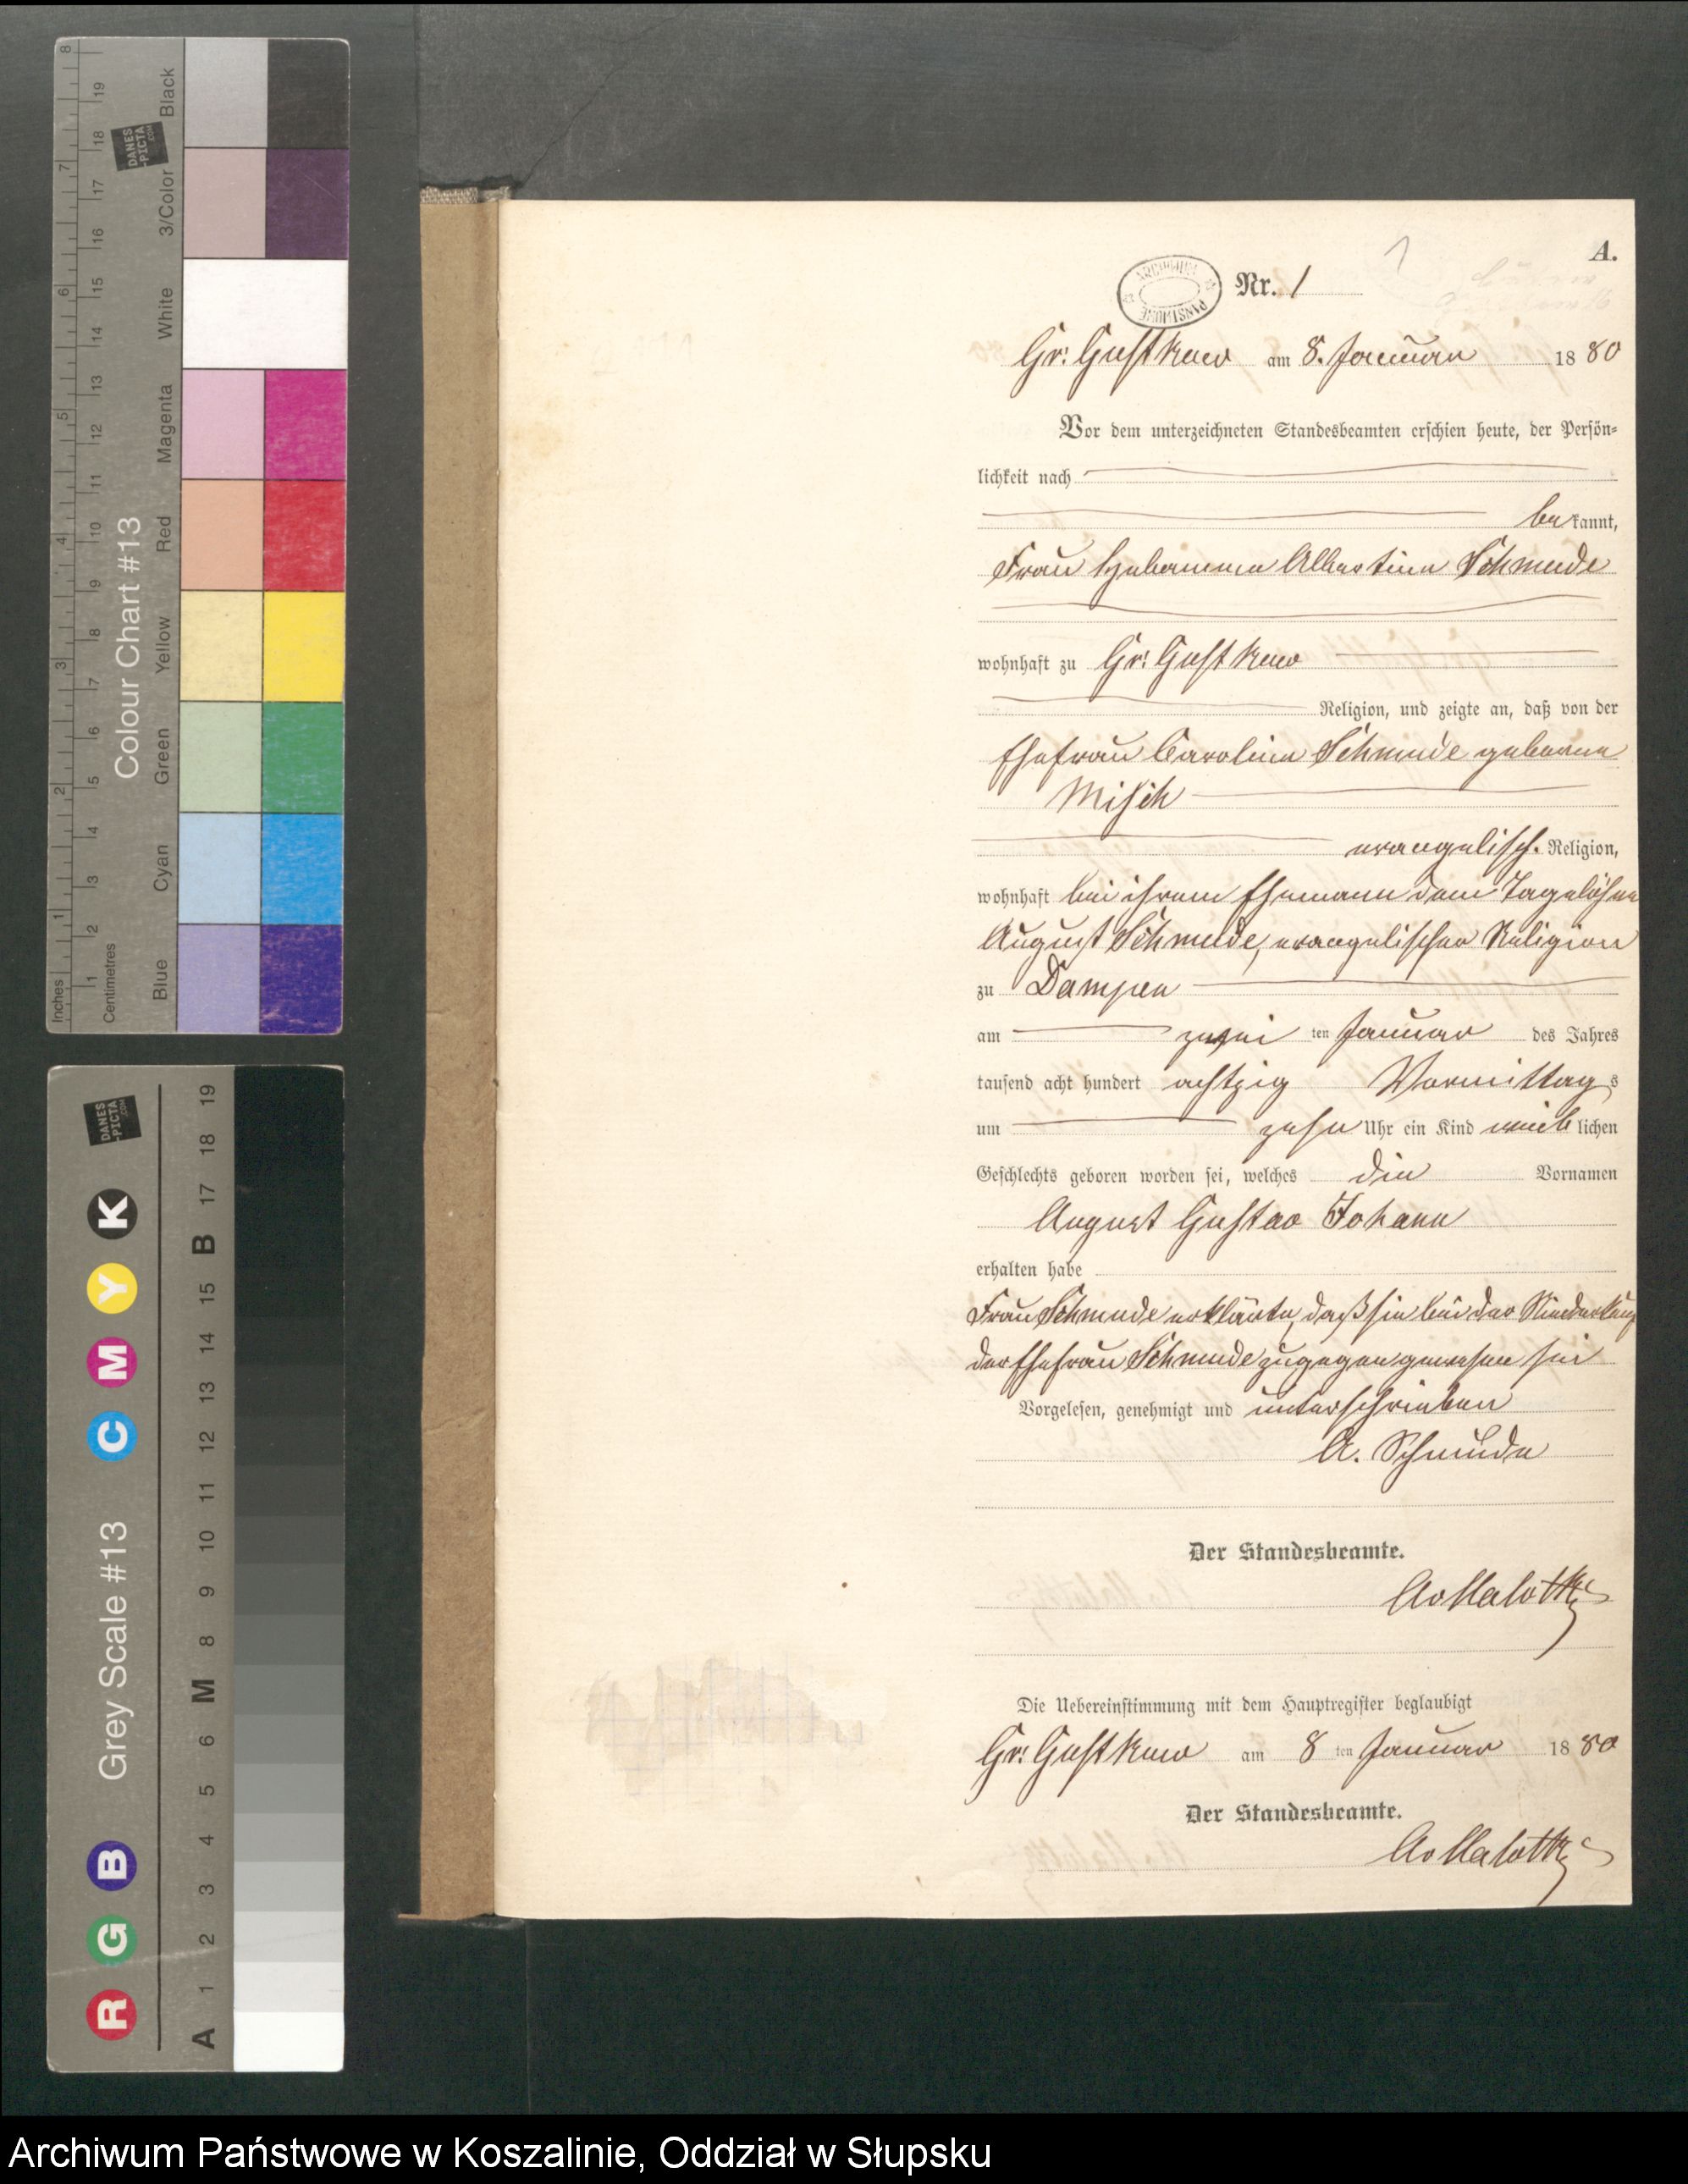 A.
1
Nr. 1
Gr. Gustkow am 8. Januar 1880
Vor dem unterzeichneten Standesbeamten erschien heute, der Persön-
lichkeit nach
bekannt,
Frau Hebamme Albertine Schmude
wohnhaft zu Gr. Gustkow
Religion, und zeigte an, daß von der
Ehefrau Caroline Schmude geborene
Misch
evangelisch. Religion,
wohnhaft bei ihrem Ehemann dem Tagelöhner
August Schmude, evangelischer Religion
zu Dampen
am zwei ten Januar des Jahres
tausend acht hundert achtzig Vormittags
um zehn Uhr ein Kind lichen
Geschlechts geboren worden sei, welches die Vornamen
August Gustav Johann
erhalten habe
Frau Schmude erklärte, daß sie bei der Niederkunft
der Ehefrau Schmude zugegen gewesen sei
Vorgelesen, genehmigt und unterschrieben
A. Schmude
Der Standesbeamte.
Die Uebereinstimmung mit dem Hauptregister beglaubigt
Gr. Gustkow am 8 ten Januar 1880
Der Standesbeamte.
Colour Chart #13
Black
3/Color
White
Magenta
Red
Yellow
Green
Cyan
Blue
Inches
Centimetres
DANES
-PICTA
.COM
Grey Scale #13
R G B C M Y K
A 1 2 3 4 5 6 M 8 9 10 11 12 13 14 15 B 17 18 19
Archiwum Państwowe w Koszalinie, Oddział w Słupsku